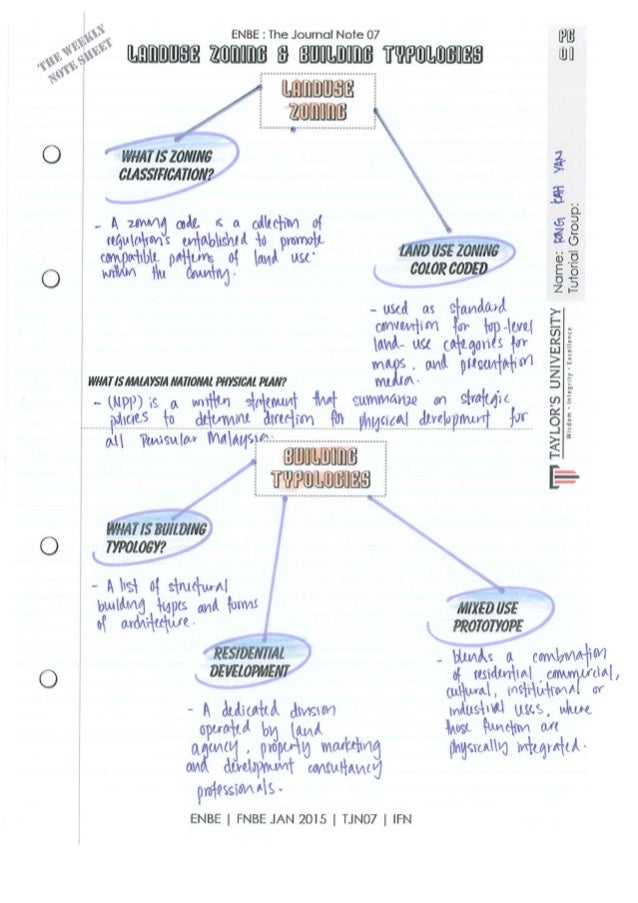 THE WEEKLY
NOTE SHEET
ENBE : The Journal Note 07
LANDUSE ZONING & BUILDING TYPOLOGIES
PG
01
LANDUSE
ZONING
WHAT IS ZONING
CLASSIFICATION?
- A zoning code is a collection of
regulations established to promote
compatible patterns of land use
within the country.
LAND USE ZONING
COLOR CODED
- used as standard
convention for top-level
land-use categories for
maps, and presentation
media.
Name: KONG KAH YAN
Tutorial Group:
TAYLOR'S UNIVERSITY
Wisdom • Integrity • Excellence
WHAT IS MALAYSIA NATIONAL PHYSICAL PLAN?
- (NPP) is a written statement that summarize on strategic
policies to determine direction for physical development for
all Penisular Malaysia.
BUILDING
TYPOLOGIES
WHAT IS BUILDING
TYPOLOGY?
- A list of structural
building types and forms
of architecture.
RESIDENTIAL
DEVELOPMENT
- A dedicated division
operated by land
agency, property marketing
and development consultancy
professionals.
MIXED USE
PROTOTYOPE
- blends a combination
of residential, commercial,
cultural, institutional or
industrial uses, where
those function are
physically integrated.
ENBE | FNBE JAN 2015 | TJN07 | IFN